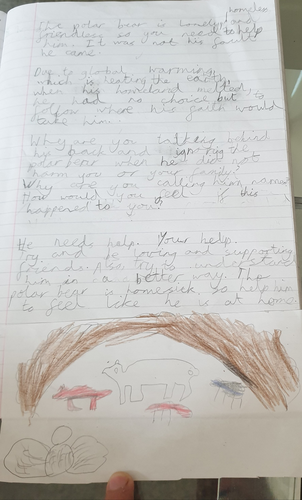 homeless
The polar bear is lonely and
friendless so you need to help
him. It was not his fault
he came.
Due to global warming
which is heating the earth,
when his homeland melted,
he had no choice but to
follow where his faith would
take him.
Why are you behind
his back and ignoring the
polar bear when he did not
harm you or your family?
Why are you calling him names?
How would you feel if this
happened to you?
He needs help. Your help.
Try and be loving and supporting
friends. Also try to understand
him in a better way. The
polar bear is homesick so help him
to feel like he is at home.